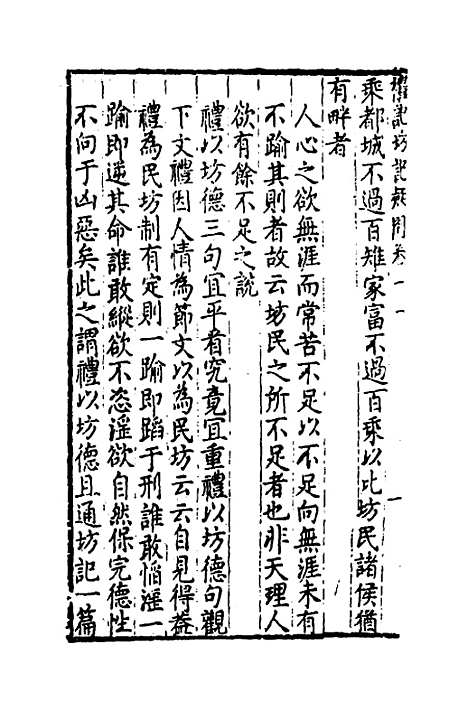 禮記坊記疑問卷一
乘都城不過百雉家富不過百乘以此坊民諸侯猶
有畔者
人心之欲無涯而常苦不足以不足向無涯未有
不踰其則者故云坊民之所不足者也非天理人
欲有餘不足之說
禮以坊德三句宜平看究竟宜重禮以坊德句觀
下文禮因人情為節文以為民坊云云自見得蓋
禮為民坊制有定則一踰即蹈于刑誰敢慆淫一
踰即逆其命誰敢縱欲不恣淫欲自然保完德性
不向于凶惡矣此之謂禮以坊德且通坊記一篇